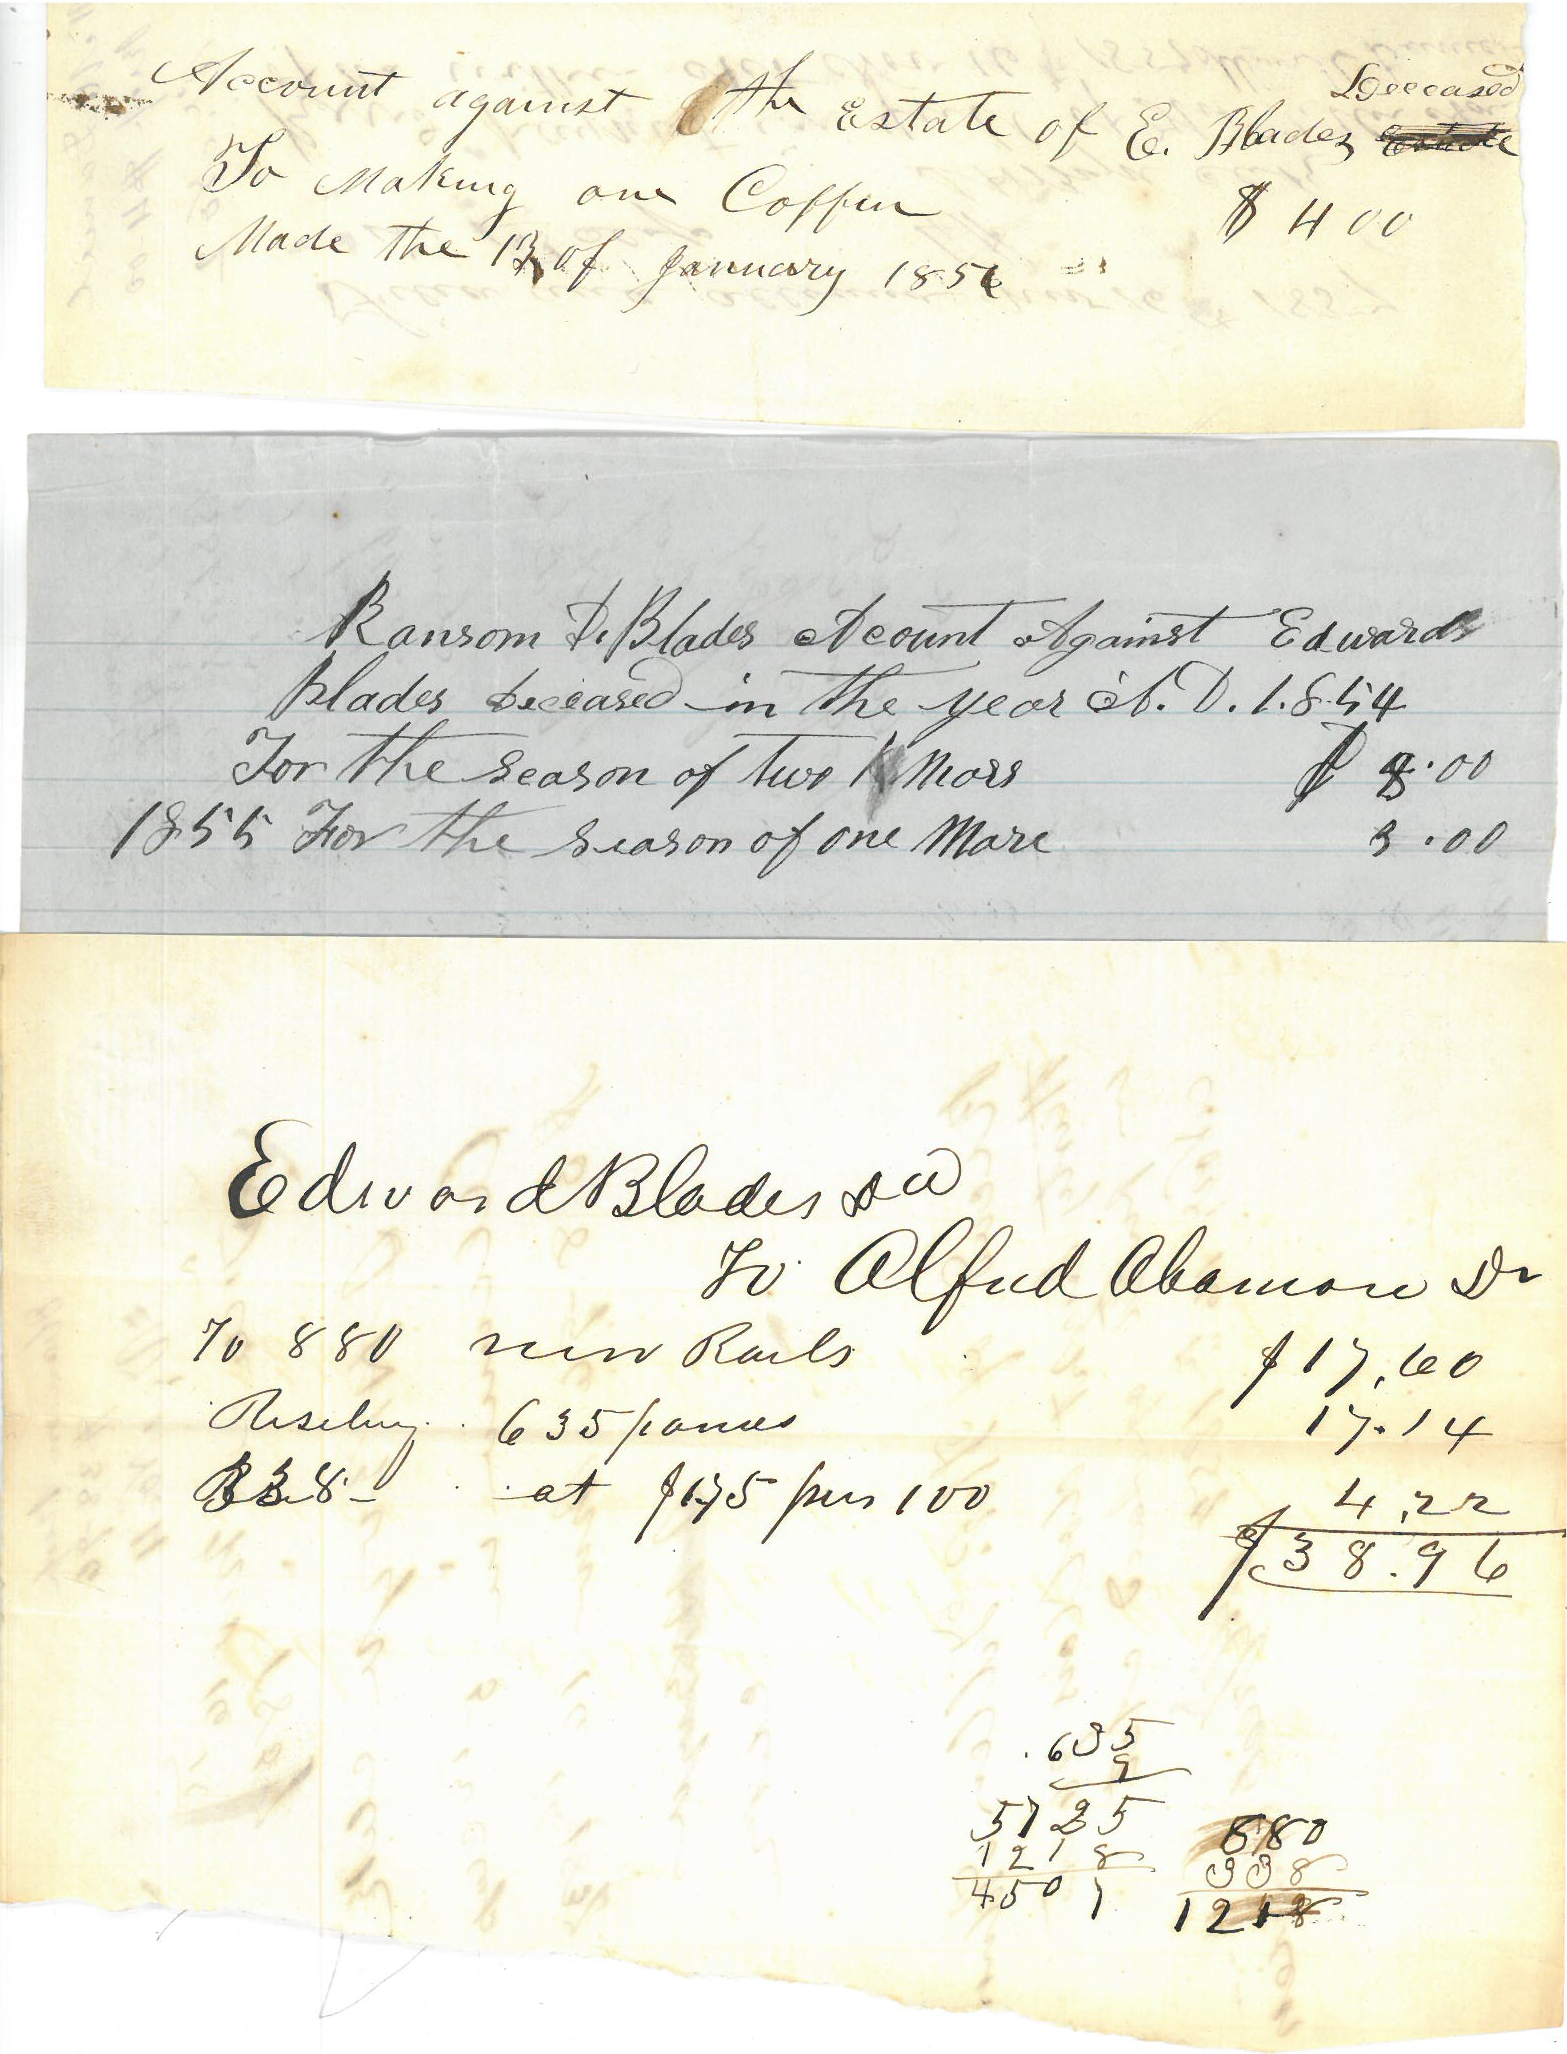 Deceased
Account against the Estate of E. Blades
To Making one Coffin $ 4 00
Made the 13 of January 1856
Ransom P. Blades Acount Against Edward
Blades Deceased in the year A. D. 1854
For the season of two Mars $ 8.00
1855 For the season of one Mare 3.00
Edward Blades
To Alfred Dr
To 880 new Rails $17,60
635 pannes 17.14
338 - at $1.75 per 100 4,22
$38.96
635
9
5725
1218
4507
880
338
1218